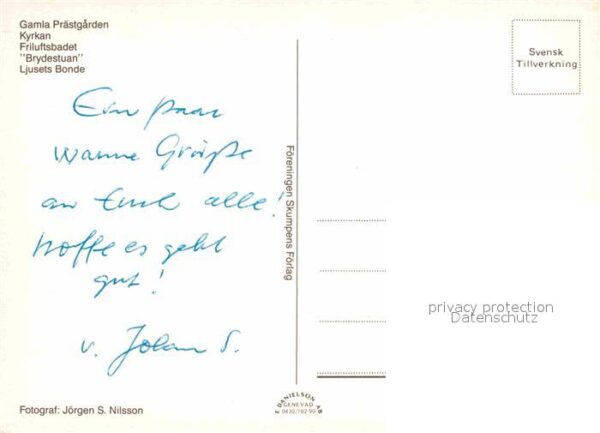 Gamla Prästgården
Kyrkan
Friluftsbadet
"Brydestuan"
Ljusets Bonde
Svensk
Tillverkning
Ein paar
warme Grüße
an Euch alle!
hoffe es geht
gut!
v. Johan S.
Föreningen Skumpens Förlag
privacy protection
Datenschutz
Fotograf: Jörgen S. Nilsson
E DANIELSON AB
GENEVAD